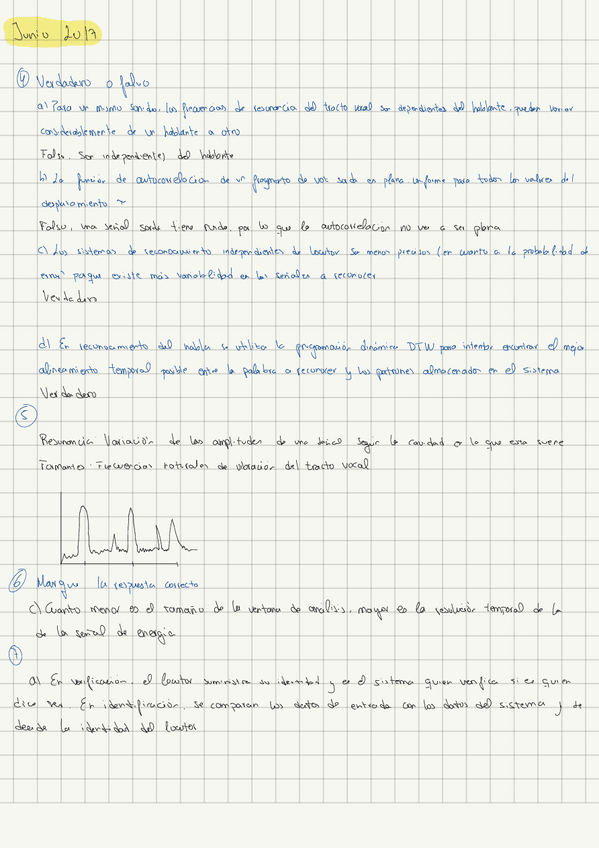 Junio 2017
④ Verdadero o falso
a) Para un mismo sonido, las frecuencias de resonancia del tracto vocal son dependientes del hablante, pueden variar
considerablemente de un hablante a otro
Falso. Son independientes del hablante
b) La función de autocorrelacion de un fragmento de voz sorda en plana uniforme para todos los valores del
desplazamiento ~
Falso, una señal sorda tiene ruido, por lo que la autocorrelacion no va a ser plana
c) Los sistemas de reconocimiento independientes de locutor son menos precisos (en cuanto a la probabilidad de
error) porque existe más variabilidad en las señales a reconocer
Verdadero
d) En reconocimiento del habla se utiliza la programación dinámica DTW para intentar encontrar el mejor
alineamiento temporal posible entre la palabra a reconocer y los patrones almacenados en el sistema
Verdadero
⑤
Resonancia: Variación de las amplitudes de una según la cavidad en la que esta suene
Formantes: Frecuencias naturales de vibración del tracto vocal
⑥ Marque la respuesta correcta
c) Cuanto menor es el tamaño de la ventana de analisis, mayor es la resolución temporal de la
de la señal de energia
⑦
a) En verificacion, el locutor suministra su identidad y es el sistema quien verifica si es quien
dice ser. En identificación, se comparan los datos de entrada con los datos del sistema y se
decide la identidad del locutor